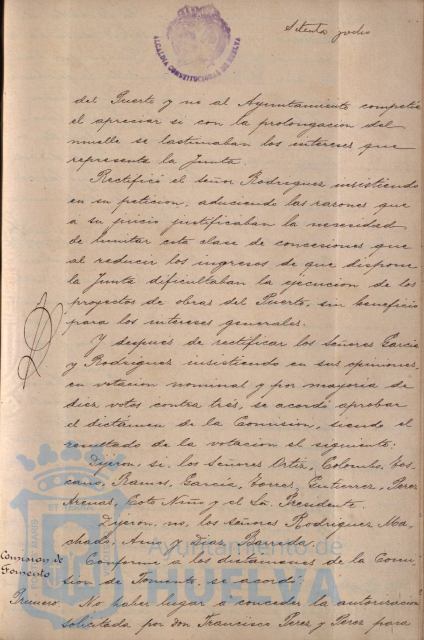 Setenta y ocho
ALCALDIA CONSTITUCIONAL DE HUELVA
del Puerto y no al Ayuntamiento competia
el apreciar si con la prolongacion del
muelle se lastimaban los intereses que
representa la Junta.
Rectificó el señor Rodriguez insistiendo
en su peticion, aduciendo las razones que
a su juicio justificaban la necesidad
de limitar esta clase de concesiones que
al reducir los ingresos de que dispone
la Junta dificultaban la ejecucion de los
proyectos de obras del Puerto, sin beneficio
para los intereses generales.
Y despues de rectificar los Señores Garcia
y Rodriguez insistiendo en sus opiniones,
en votacion nominal y por mayoria de
diez votos contra tres, se acordó aprobar
el dictámen de la Comision, siendo el
resultado de la votacion el siguiente:
Dijeron si, los Señores Ortiz, Colombo, Tos-
cano, Ramos, Garcia, Torres, Gutierrez, Perez
Arenas, Coto Niño y el Sr. Presidente
Dijeron, no, los señores Rodriguez Ma-
chado, y Diaz Barreda.
Comision de
Fomento
Conforme a los dictámenes de la Comi-
sion de Fomento, se acordó:
Primero
No haber lugar a conceder la autorizacion
solicitada por don Francisco Perez y Perez para
Ayuntamiento de
HUELVA